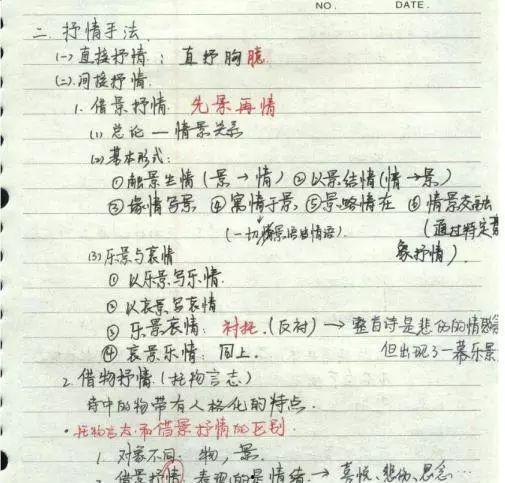 NO. DATE.
二. 抒情手法
(一) 直接抒情: 直抒胸臆
(二) 间接抒情.
1. 借景抒情. 先景再情
(1) 总论 — 情景关系
(2) 基本形式:
① 融景生情 (景→情) ② 以景结情 (情→景)
③ 缘情写景 ④ 寓情于景 ⑤ 景略情在 ⑥ 情景交融
(一切景语皆情语). (通过特定意
象抒情).
(3) 乐景与哀情
① 以乐景写乐情.
② 以哀景写哀情
③ 乐景哀情: 衬托. (反衬) → 整首诗是悲伤的情感
④ 哀景乐情: 同上. 但出现了一幕乐景
2. 借物抒情 (托物言志)
诗中的物带有人格化的特点.
• 托物言志和借景抒情的区别
1. 对象不同. 物, 景.
2. 借景抒情 表现的是情绪 → 喜悦、悲伤、思念…